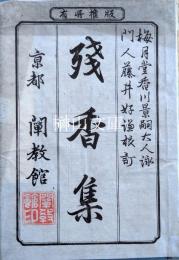 版権所有
梅月堂香川景嗣大人詠
門人藤井好謐校訂
殘香集
京都 闡教館